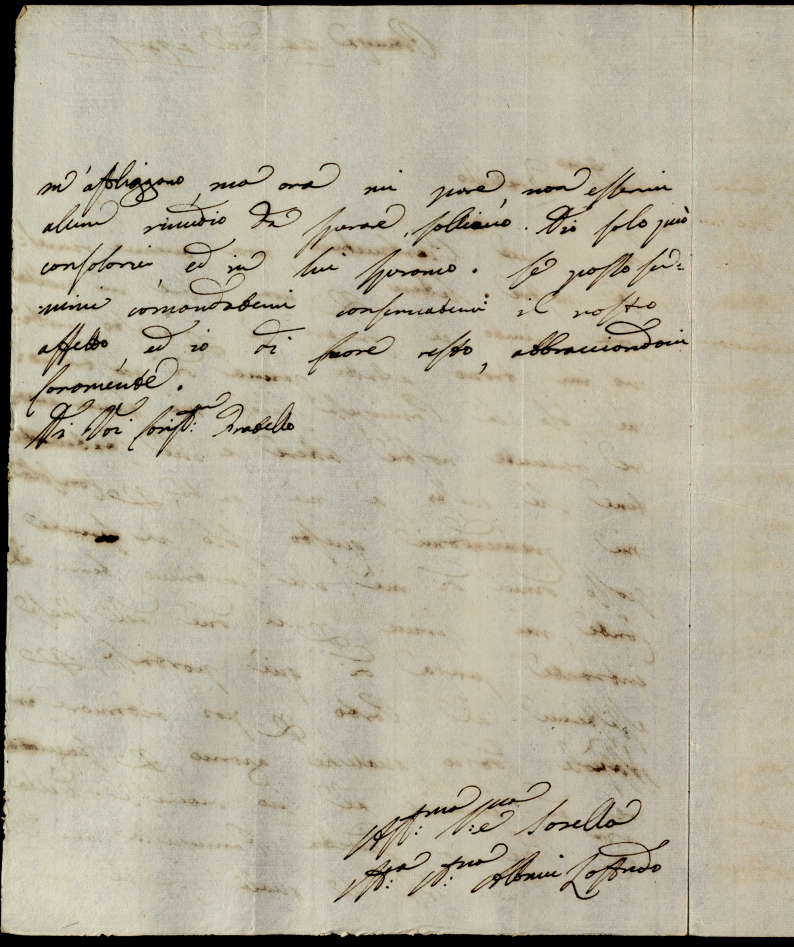 m'affliggono, ma ora mi pare, non esservi
alcun rimedio da sperare, sollievo. Dio solo può
consolarvi ed in lui speriamo. Se posso ser=
virvi comandatemi conservatemi il vostro
affetto, ed io di cuore resto, abbracciandovi
caramente.
Di Voi Cariss:mo Fratello
Aff:ma Sorella
Albrizi